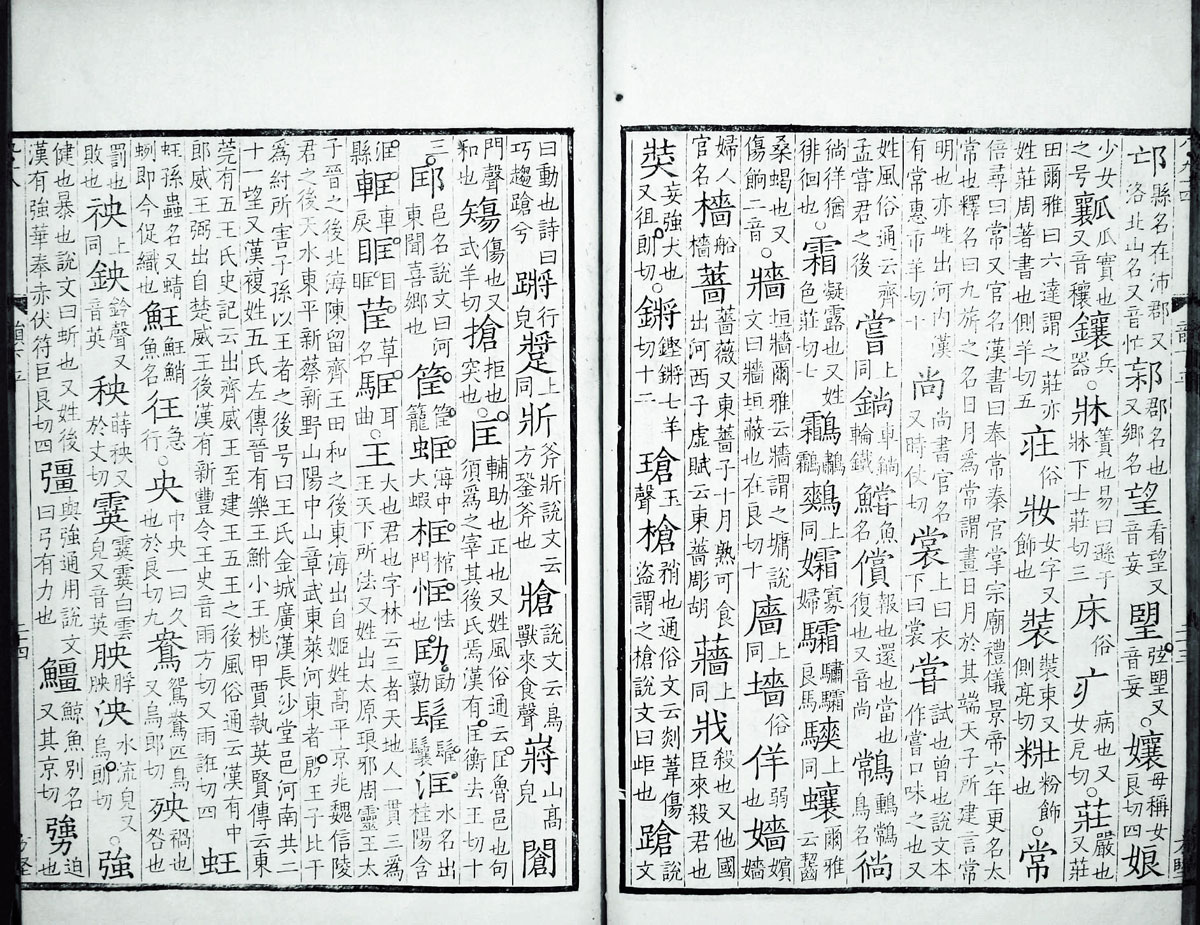 邙縣名在沛郡又洛北山名又音忙𨛌郡名也又鄉名望看望又音妄朢弦朢又音妄。孃母稱女良切四娘
少女之号瓤瓜實也又音穰鑲兵器。牀簀也易曰巽于牀下士莊切三床俗疒病也又女戹切。莊嚴也又莊
田爾雅曰六達謂之莊亦姓莊周著書也側羊切五庄俗妝女字又飾也裝裝束又側亮切粧粉飾也。常
倍尋曰常又官名漢書曰奉常秦官掌宗廟禮儀景帝六年更名太常也釋名曰九旂之名日月爲常謂畫日月於其端天子所建言常
明也亦姓出河內漢有常惠市羊切十尚尚書官名又時仗切裳上曰衣下曰裳甞試也曾也說文本作嘗口味之也又
姓風俗通云齊孟甞君之後嘗上同鋿車鋿輪鐵鱨魚名償報也還也當也復也又音尚鳥名徜
徜徉猶徘徊也。霜凝露也又姓色莊切七鸘鸘鷞鷞上同孀寡婦驦驌驦良馬騻上同𧕟爾雅云齧
桑𧕟也又傷餉二音。牆垣牆爾雅云牆謂之墉說文曰牆垣蔽也在良切十廧上同墻俗佯弱也嬙嬪嬙
婦人官名檣船檣薔薔薇又東薔子十月熟可食出河西子虛賦云東薔彫胡蘠上同戕殺也又他國臣來殺君也
奘妄強犬也又徂朗切。鏘鏗鏘七羊切十二瑲玉聲槍矟也通俗文云剡葦傷盜謂之槍說文曰岠也蹌說文
曰動也詩曰巧趨蹌兮蹡行皃上同斨斧斨說文云方銎斧也牄說文云鳥獸來食聲嶈山高皃閶
門聲和也傷也又式羊切搶拒也突也。匡輔助也正也又姓風俗通云匡魯邑也句須爲之宰其後氏焉漢有匡衡去王切十
三邼邑名說文曰河東聞喜鄉也筐筐籠𧊰海中大蝦框棺門恇怯劻劻勷髺髺鬤洭水名出桂陽含
洭縣軭車戾眶目眶草名耳曲。王大也君也字林云三者天地人一貫三爲王天下所法又姓出太原琅邪周靈王太
子晉之後北海陳留齊王田和之後東海出自姬姓高平京兆魏信陵君之後天水東平新蔡新野山陽中山章武東萊河東者殷王子比干
爲紂所害子孫以王者之後号曰王氏金城廣漢長沙堂邑河南共二十一望又漢複姓五氏左傳晉有樂王鮒小王桃甲賈執英賢傳云東
莞有五王氏史記云出齊威王至建王五王之後風俗通云漢有中郎威王弼出自楚威王後漢有新豐令王史音雨方切又雨誑切四蚟
蚟孫蟲名又蜻蛚即今促織也鮏鮏鮹魚名彺急行。央中央一曰久也於良切九鴦鴛鴦匹鳥又烏郎切殃禍也咎也
罰也敗也䄃上同鉠鈴聲又音英秧蒔秧又於丈切霙霙霙白雲皃又音英胦脖胦泱水流皃又烏朗切。強
健也暴也說文曰蚚也又姓後漢有強華奉赤伏符巨良切四彊與強通用說文曰弓有力也鱷鯨魚別名又其京切勥迫也